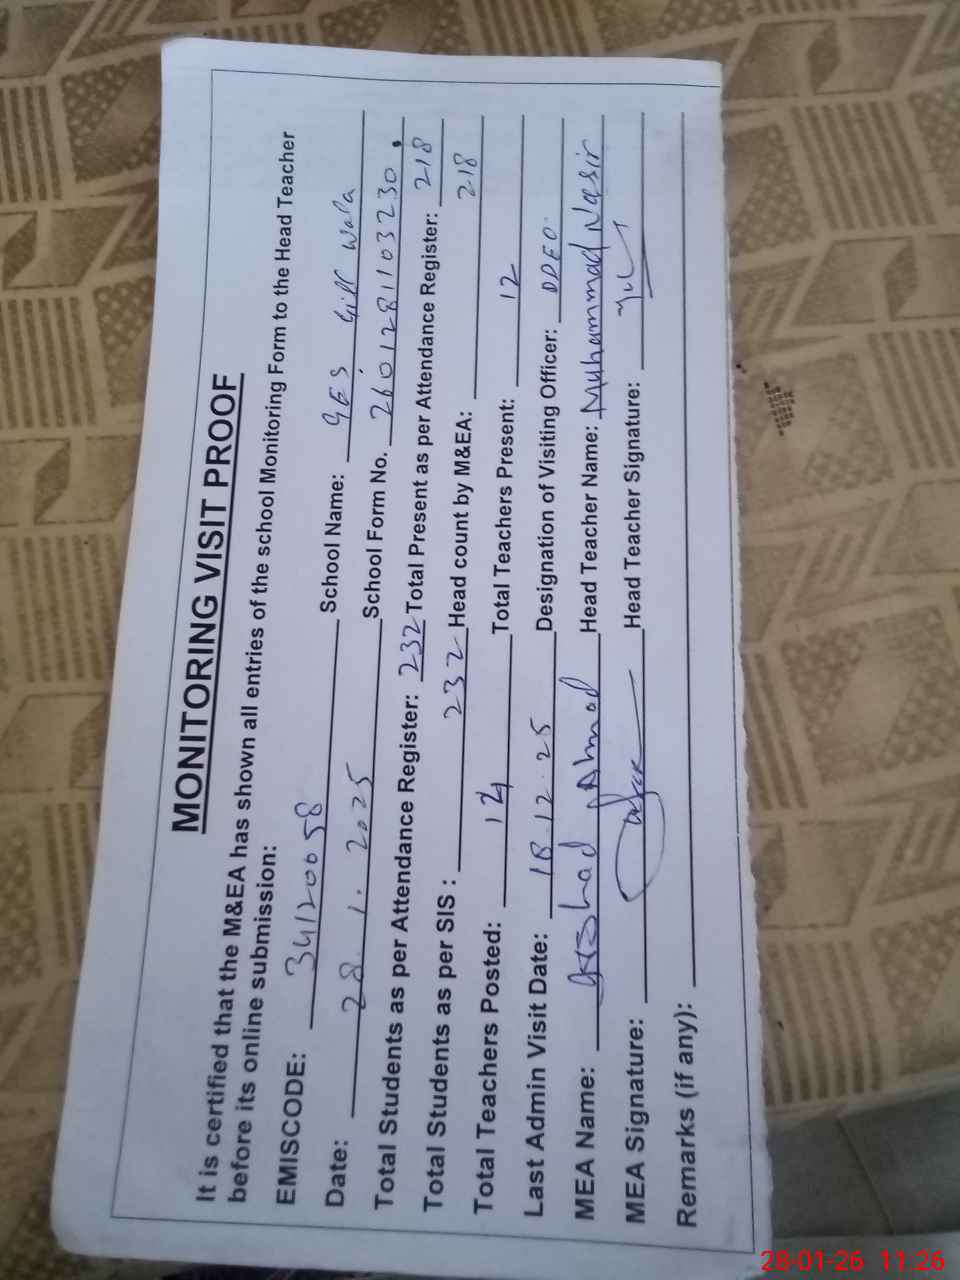 MONITORING VISIT PROOF
It is certified that the M&EA has shown all entries of the school Monitoring Form to the Head Teacher
before its online submission:
EMISCODE: 34120058 School Name: GES Gill Wala
Date: 28.1.2025 School Form No. 2601281103230
Total Students as per Attendance Register: 232 Total Present as per Attendance Register: 218
Total Students as per SIS : 232 Head count by M&EA: 218
Total Teachers Posted: 12 Total Teachers Present: 12
Last Admin Visit Date: 18.12.25 Designation of Visiting Officer: DDEO
MEA Name: Ahmad Head Teacher Name: Muhammad Nasir
MEA Signature: Head Teacher Signature:
Remarks (if any):
28-01-26 11:26